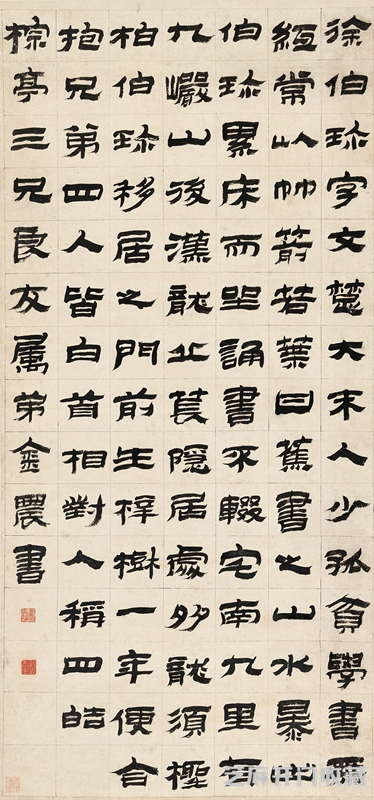 徐伯珍字文楚大末人少孤貧學書無
紙常以竹箭若葉曰蕉書之山水暴出
伯珍累床而坐誦書不輟宅南九里有
九巖山後漢龍丘萇隱居處多龍須檉
柏伯珍移居之門前生梓樹一年便合
抱兄弟四人皆白首相對人稱四皓
棕亭三兄良友属弟金農書